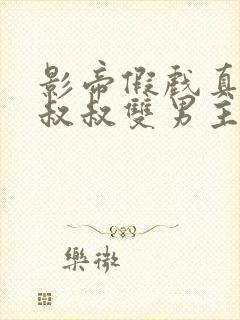 影帝假戲真
叔叔雙男主
樂微